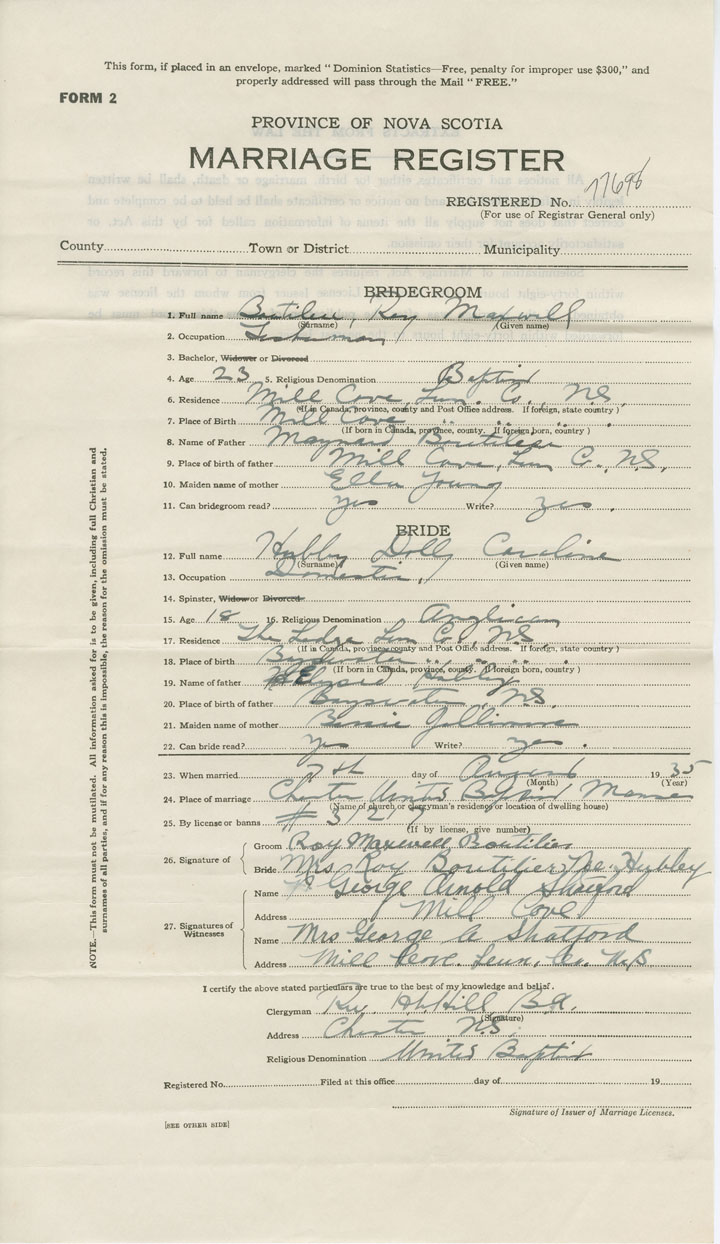 This form, if placed in an envelope, marked " Dominion Statistics—Free, penalty for improper use $300," and
properly addressed will pass through the Mail " FREE."
FORM 2
PROVINCE OF NOVA SCOTIA
MARRIAGE REGISTER
REGISTERED No.
(For use of Registrar General only)
County Town or District Municipality
BRIDEGROOM
1. Full name Boutilier, Roy Maxwell
(Surname) (Given name)
2. Occupation Fisherman
3. Bachelor, Widower or Divorced
4. Age 23 5. Religious Denomination Baptist
6. Residence Mill Cove, Lun. Co., N.S.
(If in Canada, province, county and Post Office address. If foreign, state country )
7. Place of Birth Mill Cove " " "
(If born in Canada, province, county. If foreign born, country )
8. Name of Father Maynard Boutilier
9. Place of birth of father Mill Cove, Lun Co., N.S.
10. Maiden name of mother Ella Young
11. Can bridegroom read? yes Write? yes.
BRIDE
12. Full name Hubley Dolly Caroline
(Surname) (Given name)
13. Occupation Domestic,
14. Spinster, Widow or Divorced
15. Age 18 16. Religious Denomination Anglican
17. Residence The Lodge Lun Co., N.S.
(If in Canada, province county and Post Office address. If foreign, state country )
18. Place of birth " " "
(If born in Canada, province, county. If foreign born, country )
19. Name of father Hubley
20. Place of birth of father Bayswater, N.S.
21. Maiden name of mother Bessie
22. Can bride read? yes Write? yes.
23. When married 7th day of August 1935
(Month) (Year)
24. Place of marriage Chester United Baptist Manse
(Name of church or clergyman's residence or location of dwelling house)
25. By license or banns
(If by license, give number)
26. Signature of
Groom Roy Maxwell Boutilier
Bride Mrs Roy Boutilier nee Hubley
27. Signatures of Witnesses
Name George Arnold Shatford
Address Mill Cove
Name Mrs George A Shatford
Address Mill Cove. Lun. Co. N.S.
I certify the above stated particulars are true to the best of my knowledge and belief.
Clergyman Rev. Hill B.A.
(Signature)
Address Chester N.S.
Religious Denomination United Baptist
Registered No. Filed at this office day of 19
Signature of Issuer of Marriage Licenses.
[SEE OTHER SIDE]
NOTE.—This form must not be mutilated. All information asked for is to be given, including full Christian and
surnames of all parties, and if for any reason this is impossible, the reason for the omission must be stated.